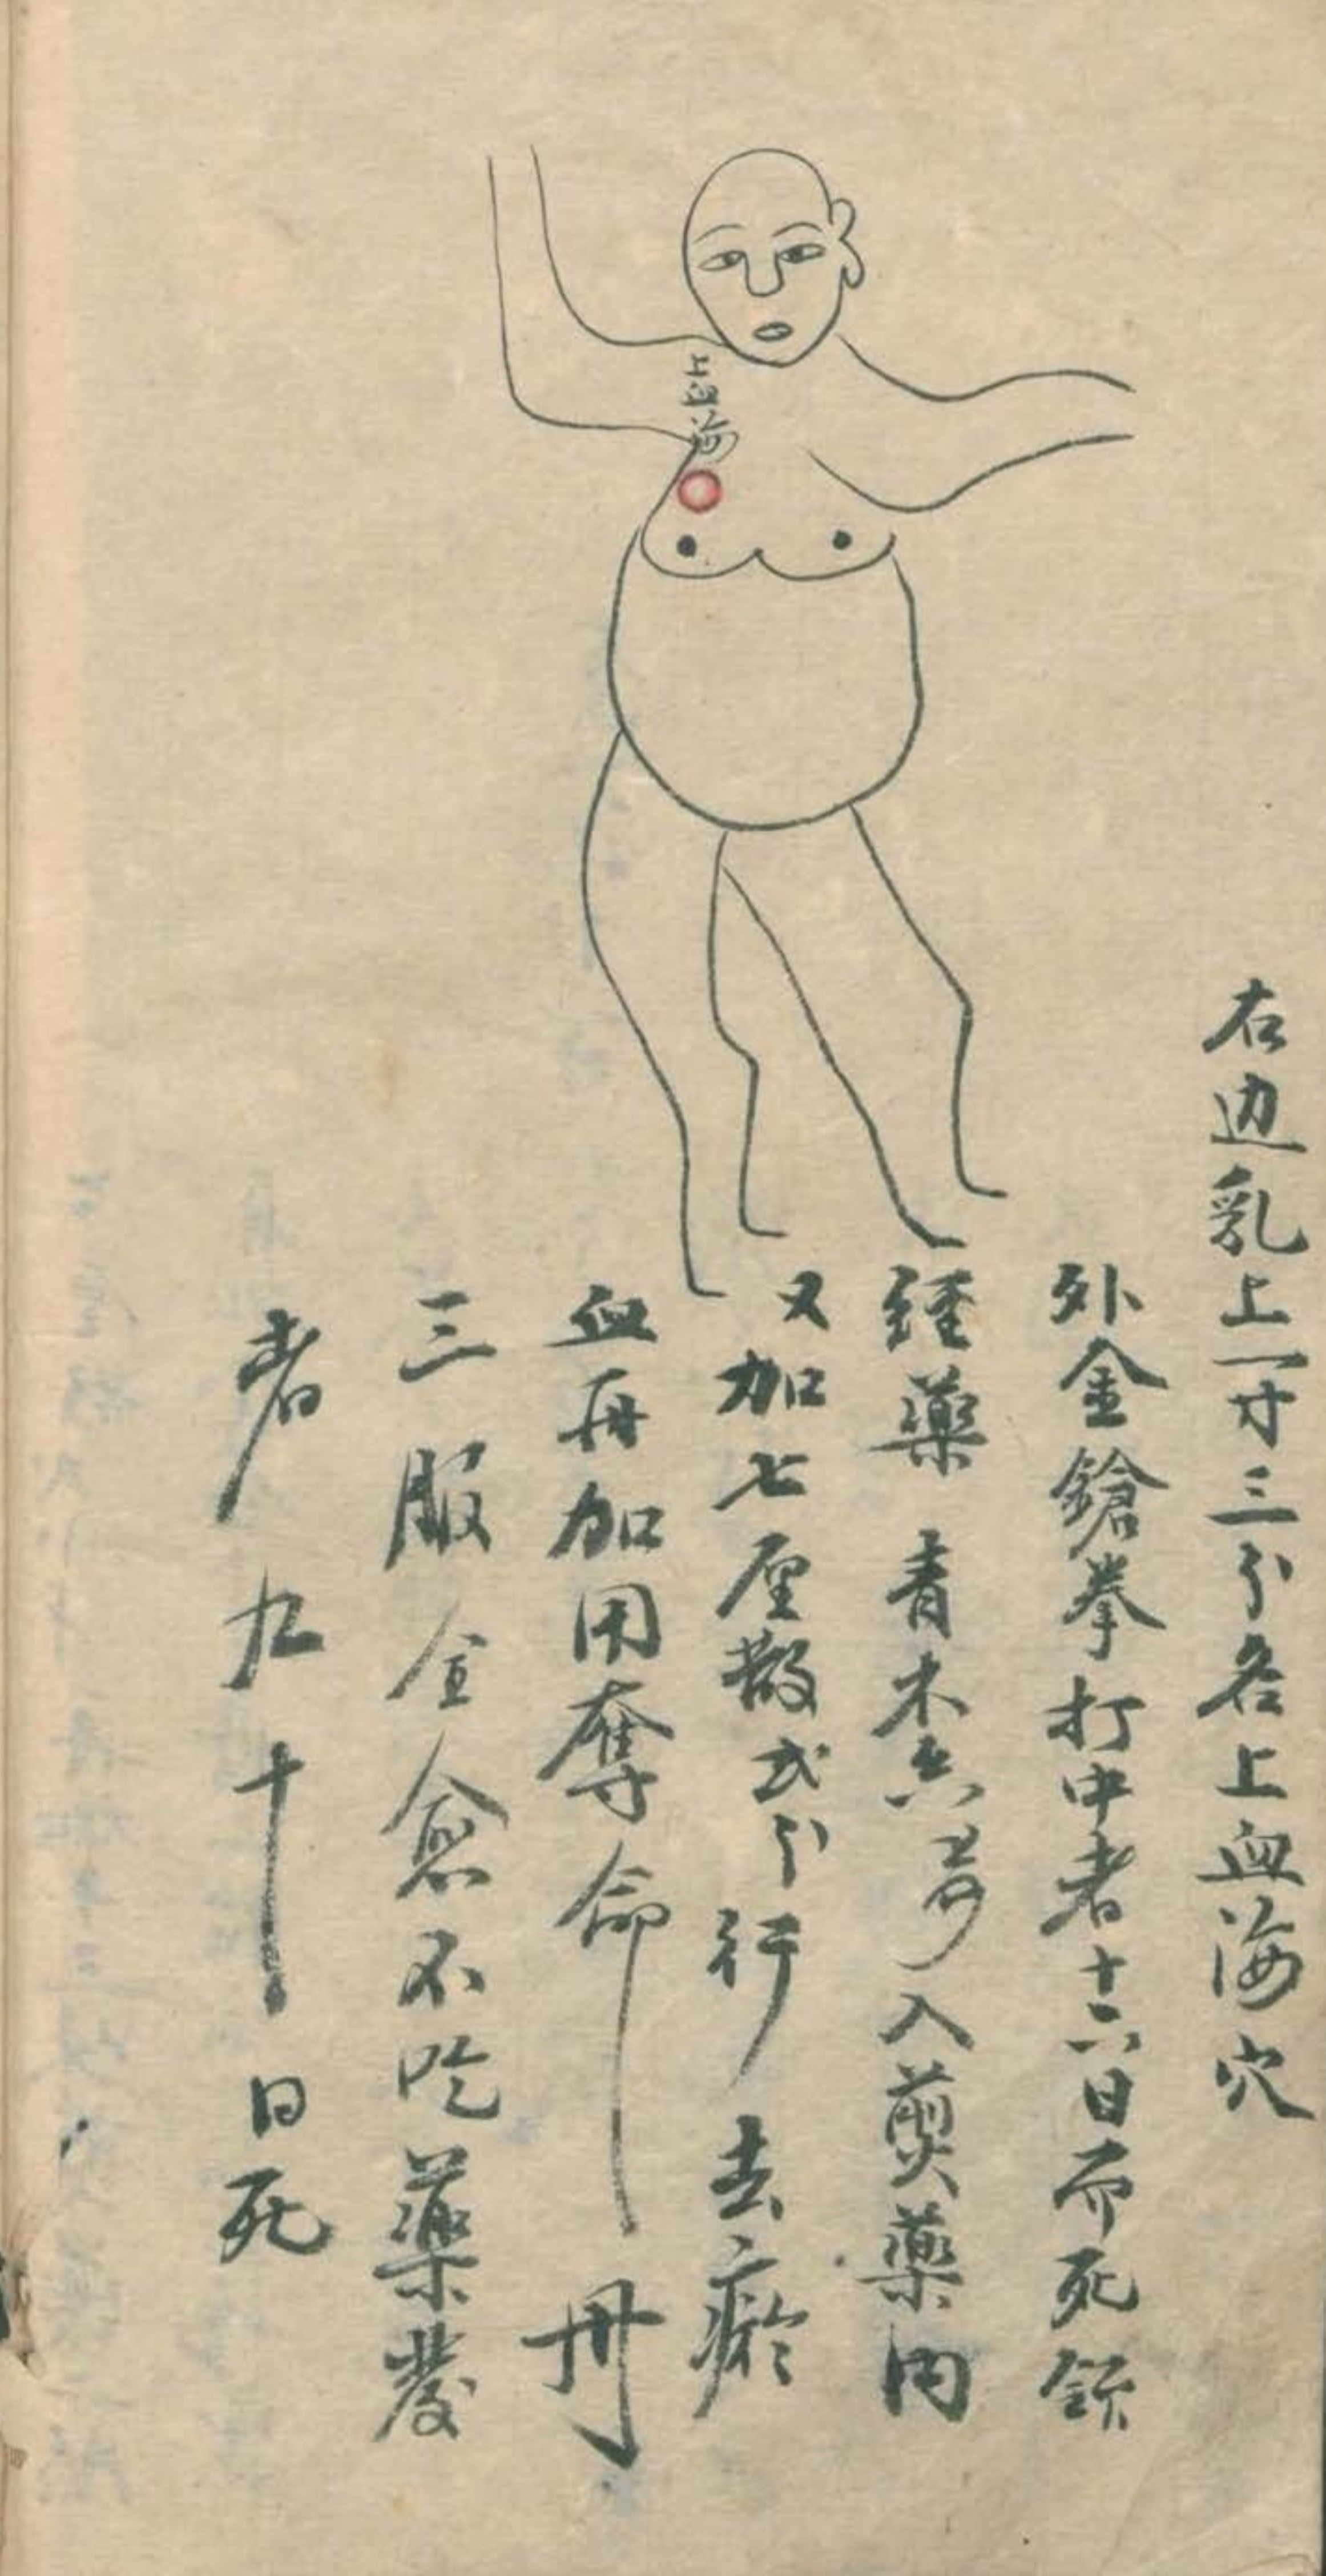 上血海
右边乳上一寸三分名上血海穴
外金鎗拳打中者十六日而死
經藥 青木 入煎藥內
又加七厘散弍分行去瘀
血再加用奪命丹
三服全愈不吃藥發
者九十日死